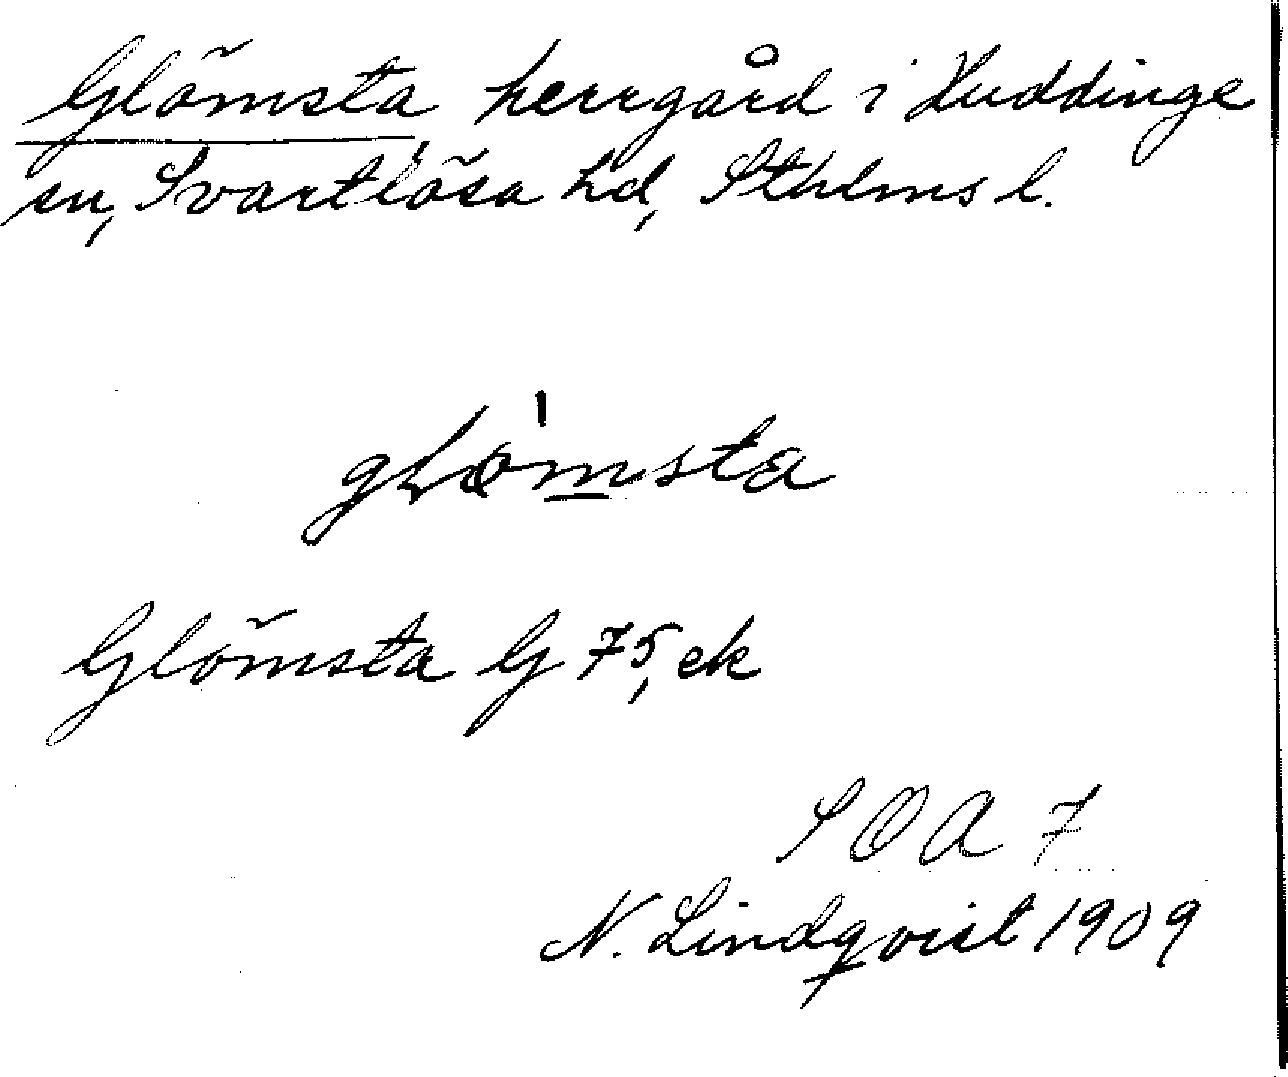 Glömsta herrgård i Huddinge
sn, Svartlösa hd, Sthlms l.
glömsta
Glömsta G 75, ek
SOA 7
N. Lindqvist 1909